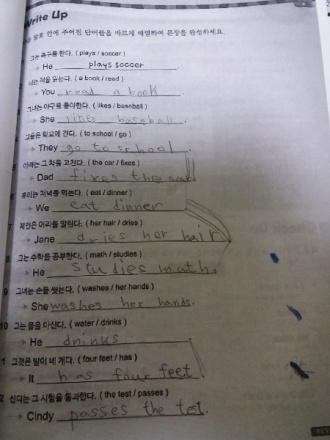 Write Up
안에 주어진 단어들을 바르게 배열하여 문장을 완성하세요.
그는 축구를 한다. ( plays / soccer )
→ He plays soccer
너는 책을 읽는다. ( a book / read )
→ You read a book
그녀는 야구를 좋아한다. ( likes / baseball )
→ She likes baseball
그들은 학교에 간다. ( to school / go )
→ They go to school
아빠는 그 차를 고친다. ( the car / fixes )
→ Dad fixes the car
우리는 저녁을 먹는다. ( eat / dinner )
→ We eat dinner
7 제인은 머리를 말린다. ( her hair / dries )
→ Jane dries her hair
8 그는 수학을 공부한다. ( math / studies )
→ He studies math.
9 그녀는 손을 씻는다. ( washes / her hands )
→ She washes her hands.
10 그는 물을 마신다. ( water / drinks )
→ He drinks
1 그것은 발이 네 개다. ( four feet / has )
→ It has four feet.
2 신디는 그 시험을 통과한다. ( the test / passes )
→ Cindy passes the test.